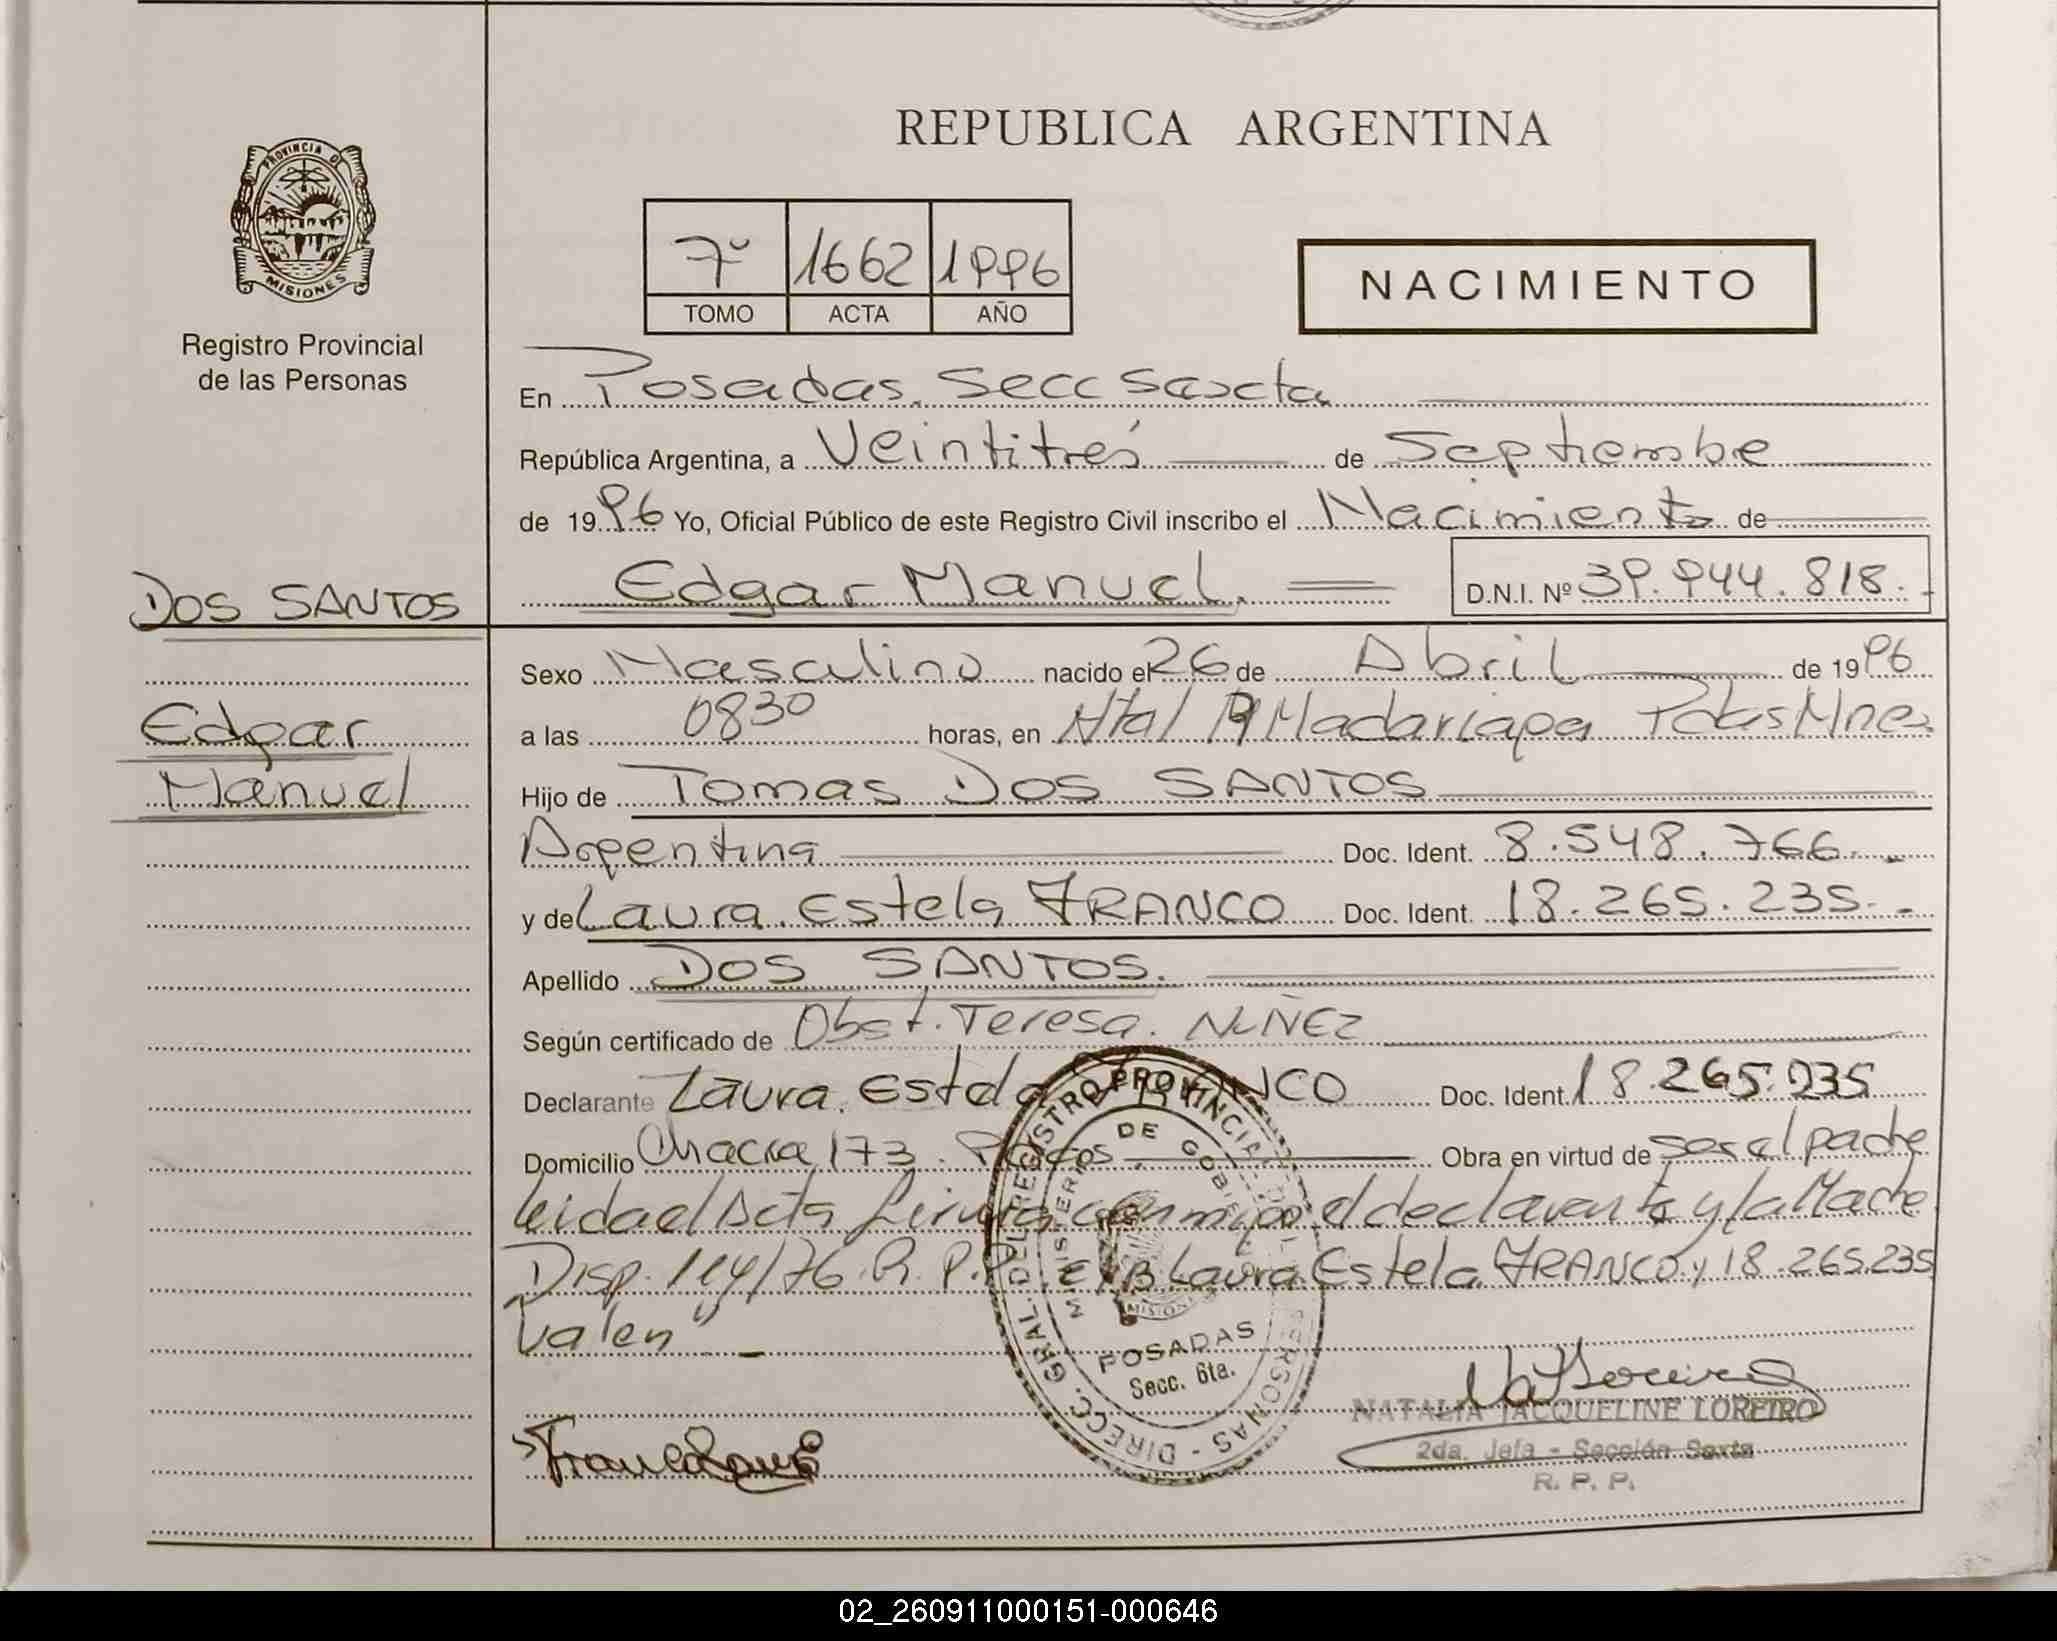 REPUBLICA ARGENTINA
PROVINCIA D
MISIONES
Registro Provincial
de las Personas
7º 1662 1996
TOMO ACTA AÑO
NACIMIENTO
En Posadas. Secc Sexta
República Argentina, a Veintitrés de Septiembre
de 1996 Yo, Oficial Público de este Registro Civil inscribo el Nacimiento de
DOS SANTOS
Edgar Manuel.
D.N.I. Nº 39.944.818.-
Edgar
Manuel
Sexo Masculino nacido el 26 de Abril de 1996
a las 0830 horas, en Htal R Madariaga Pdas Mnes
Hijo de Tomas DOS SANTOS
Argentina Doc. Ident. 8.548.766.-
y de Laura. Estela FRANCO Doc. Ident. 18.265.235.-
Apellido DOS SANTOS.
Según certificado de Obst. Teresa. NUÑEZ
Declarante Laura. Estela FRANCO Doc. Ident. 18.265.235
Domicilio Chacra 173. Pdas. Obra en virtud de ser el padre
leida el Acta firma conmigo el declarante y la Madre
Disp. 114/76. R. P. P. E/R Laura Estela FRANCO y 18.265.235
Valen"-
DIRECC. GRAL. DEL REGISTRO PROVINCIAL DE LAS PERSONAS
MINISTERIO DE GOBIERNO
MISIONES
POSADAS
Secc. 6ta.
Franco Laura E
NATALIA JACQUELINE LOREIRO
2da. Jefa - Sección Sexta
R. P. P.
02_260911000151-000646